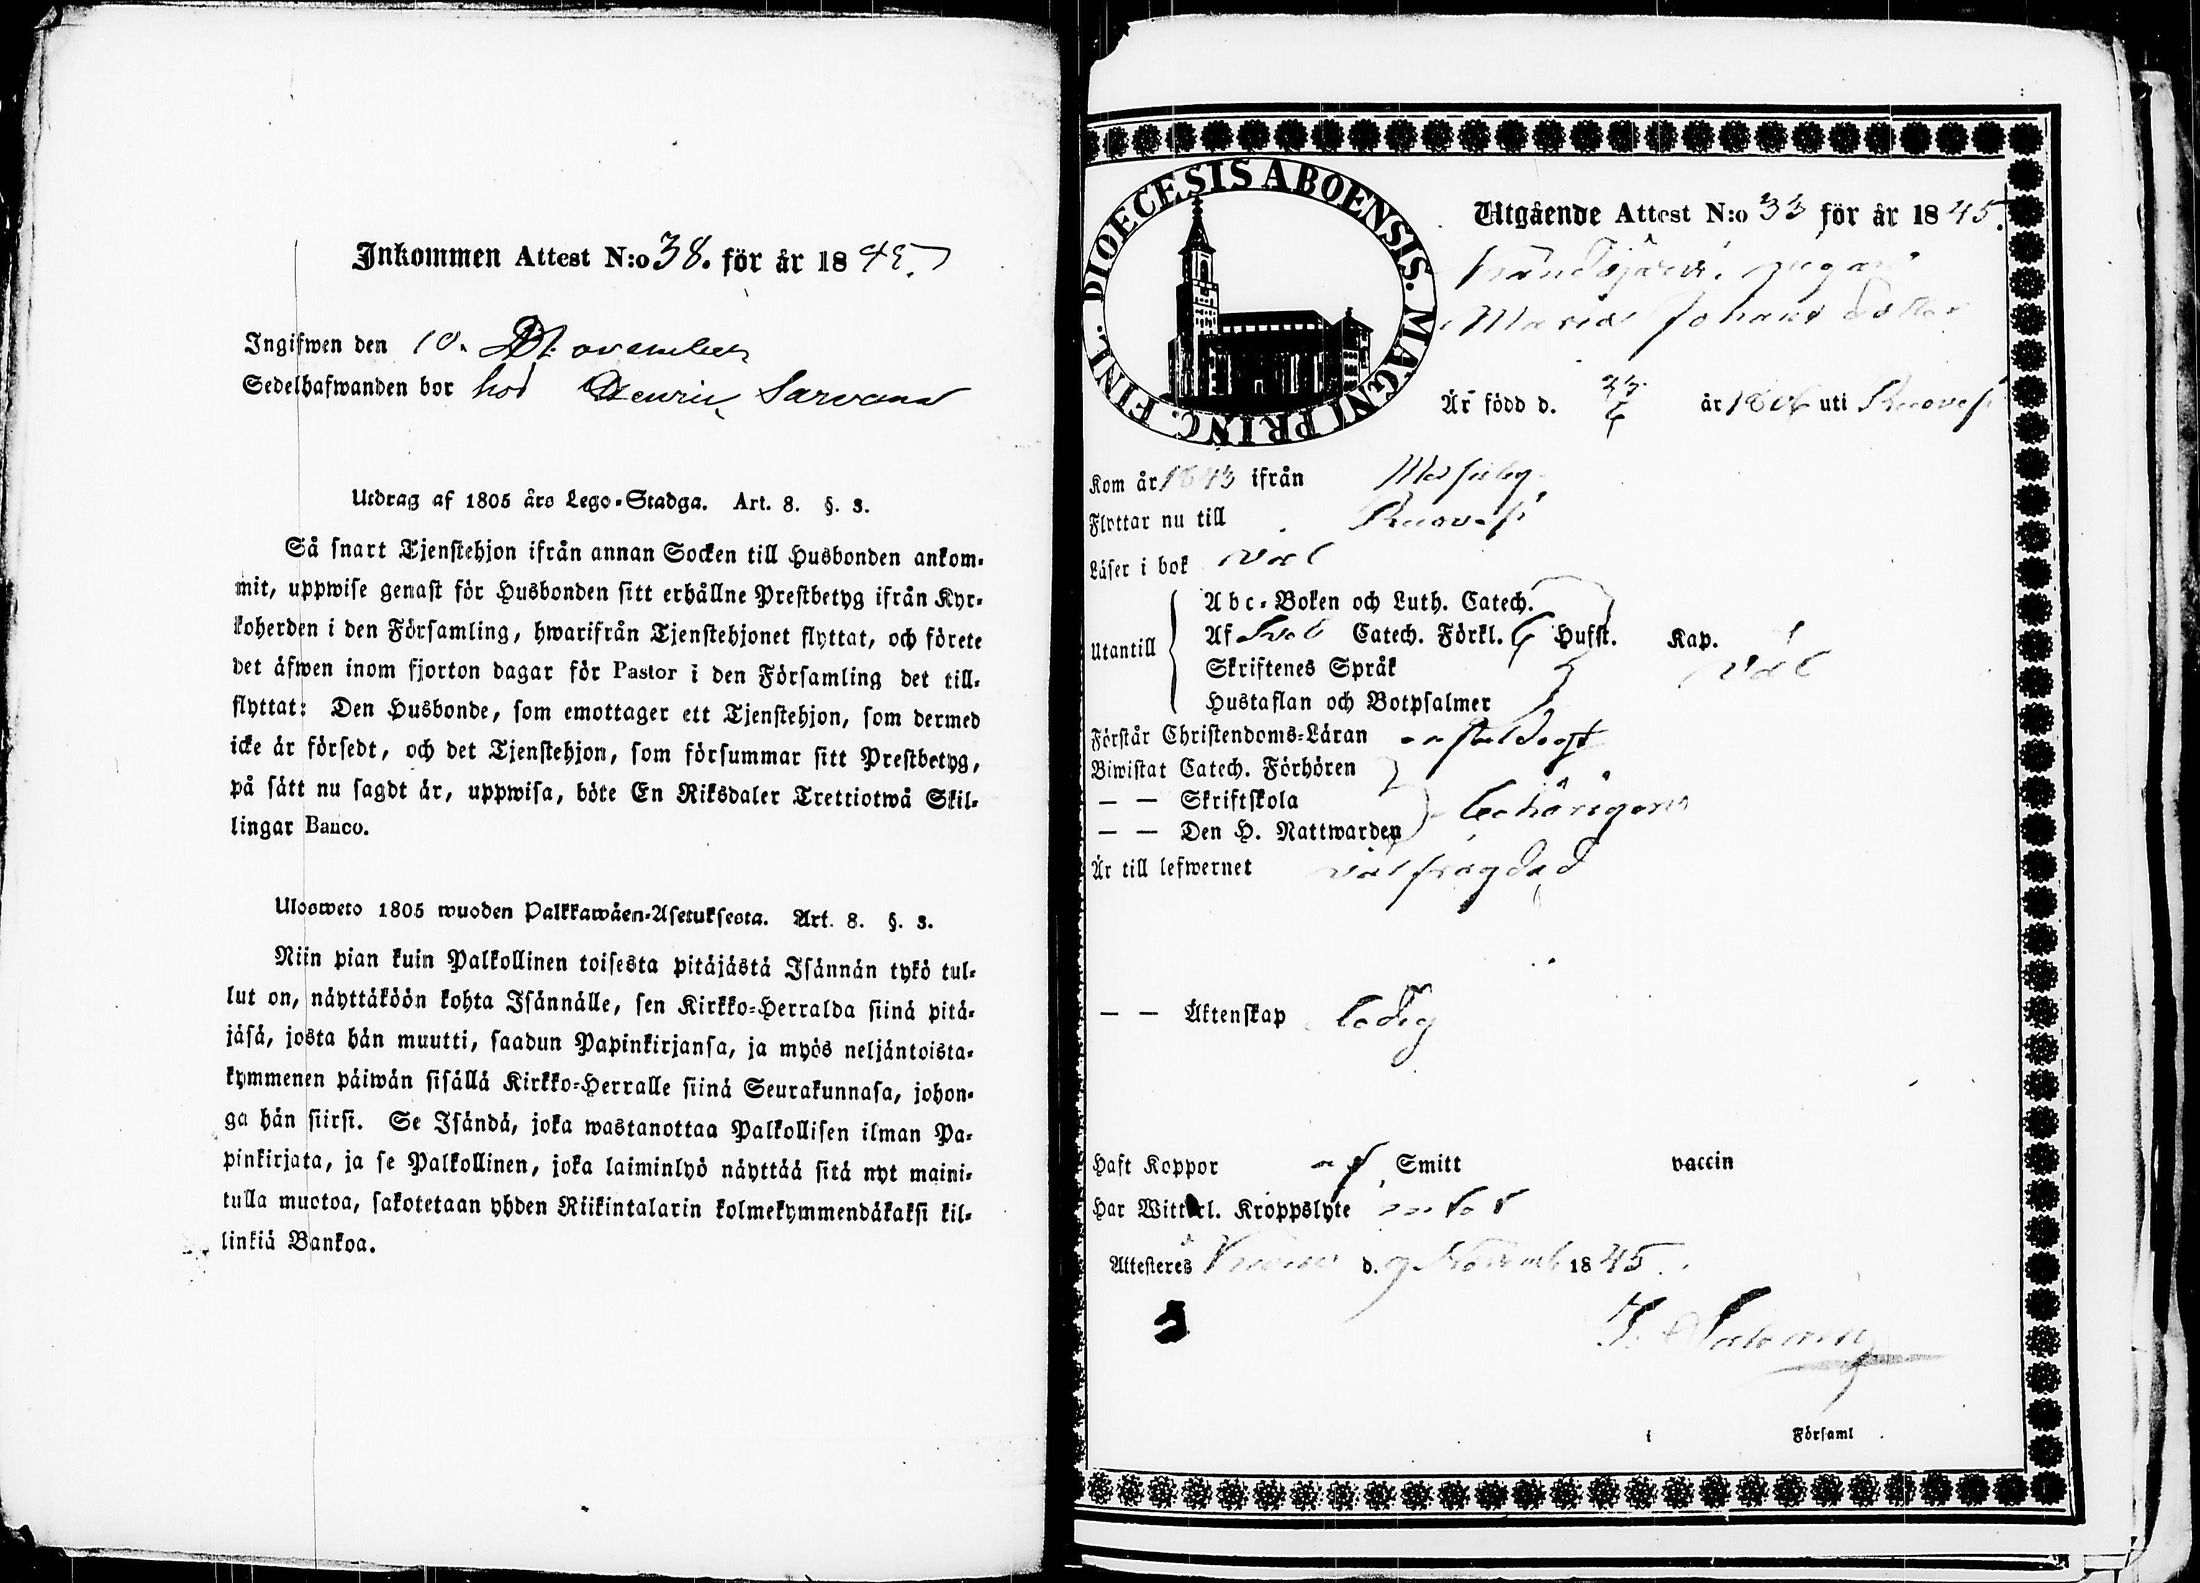 Inkommen Attest N:o 38. för år 1845.
Ingifwen den 10. November
Sedelhafwanden bor hos Henric Sarvana
Utdrag af 1805 års Lego-Stadga. Art. 8. §. 3.
Så snart Tjenstehjon ifrån annan Socken till Husbonden ankom-
mit, uppwise genast för Husbonden sitt erhållne Prestbetyg ifrån Kyr-
koherden i den Församling, hwarifrån Tjenstehjonet flyttat, och förete
det äfwen inom fjorton dagar för Pastor i den Församling det till-
flyttat: Den Husbonde, som emottager ett Tjenstehjon, som dermed
icke är försedt, och det Tjenstehjon, som försummar sitt Prestbetyg,
på sätt nu sagdt är, uppwisa, böte En Riksdaler Trettiotwå Skil-
lingar Banco.
Ulosweto 1805 wuoden Palkkawäen-Asetuksesta. Art. 8. §. 3.
Niin pian kuin Palkollinen toisesta pitäjästä Isännän tykö tul-
lut on, näyttäköön kohta Isännälle, sen Kirkko-Herralda siinä pitä-
jäsä, josta hän muutti, saadun Papinkirjansa, ja myös neljäntoista-
kymmenen päiwän sisällä Kirkko-Herralle siinä Seurakunnasa, johon-
ga hän siirsi. Se Isändä, joka wastanottaa Palkollisen ilman Pa-
pinkirjata, ja se Palkollinen, joka laiminlyö näyttää sitä nyt maini-
tulla muotoa, sakotetaan yhden Riikintalarin kolmekymmendäkaksi kil-
linkiä Bankoa.
DIOECESIS ABOENSIS. MAGNI PRINC. FINL.
Utgående Attest N:o 33 för år 1845.
pigan
Maria Johans dotter
Är född d. 23/6 år 1806 uti Ruovesi
Kom år 1843 ifrån Messuby
Flyttar nu till Ruovesi
Läser i bok väl
Utantill
Abc-Boken och Luth. Catech.
Af Sveb Catech. Förkl. 6 Hufst. Kap.
Skriftenes Språk väl
Hustaflan och Botpsalmer
Förstår Christendoms-Läran enfaldigt
Biwistat Catech. Förhören
— — Skriftskola behörigen
— — Den H. Nattwarden
Är till lefwernet välfrägdad
— — Äktenskap ledig
Haft Koppor af Smitt vaccin
Har Witterl. Kroppslyte intet
Attesteres d. 9 Novemb 1845.
i Församl